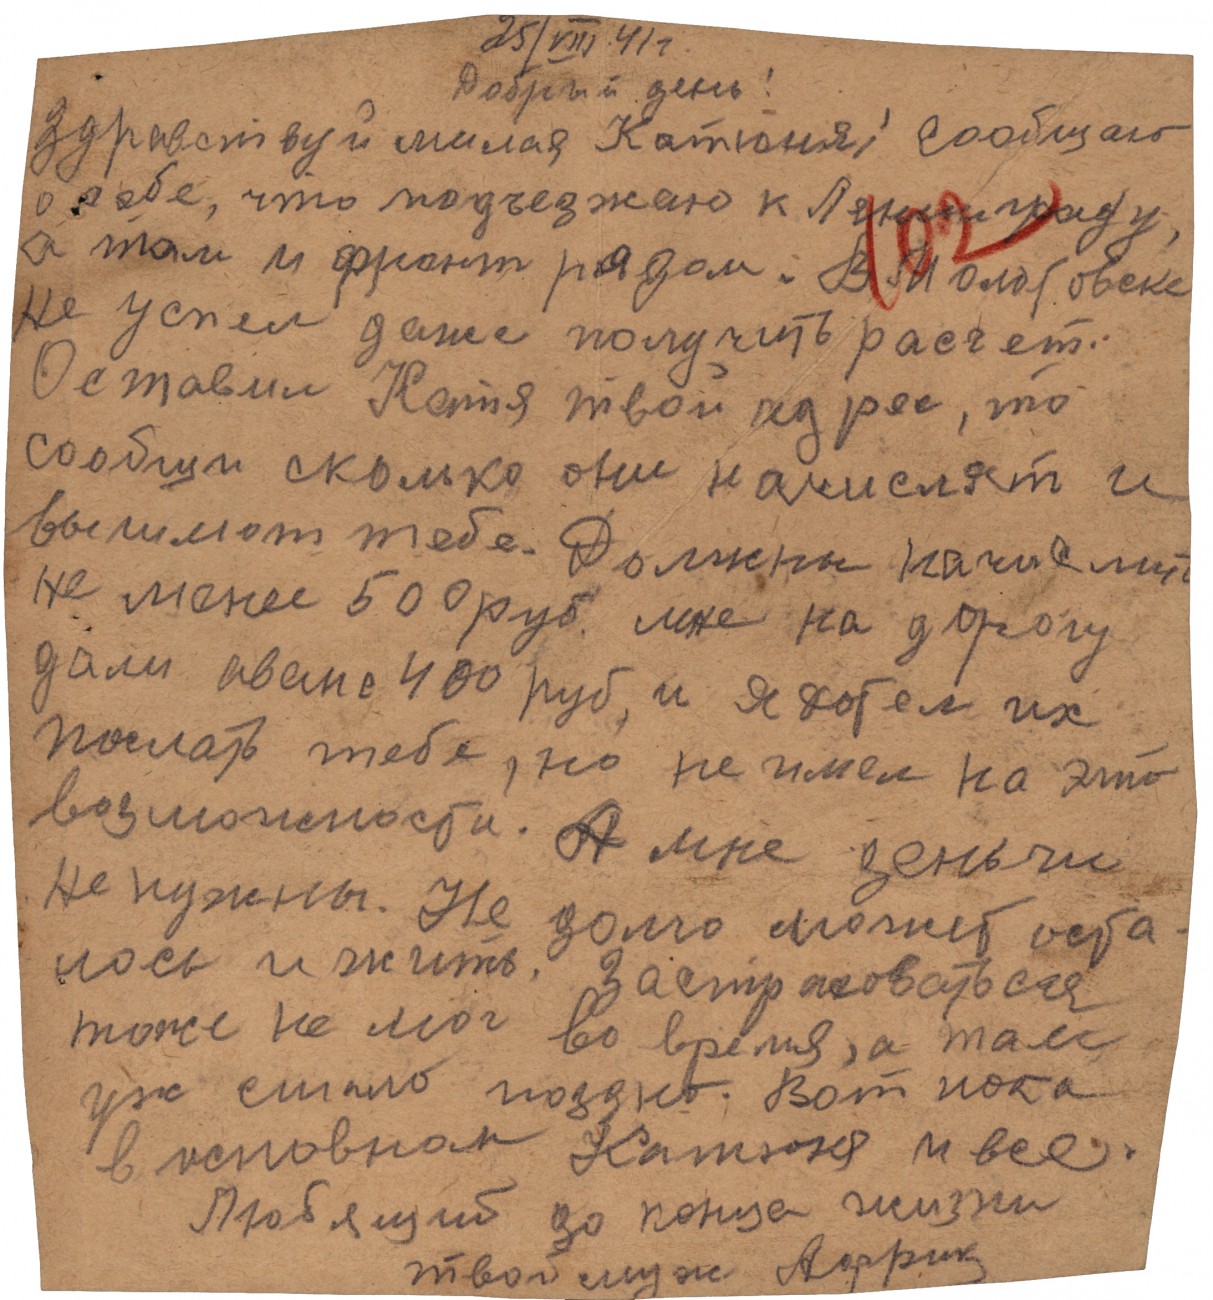 25/VIII.41г.
Добрый день!
Здравствуй милая Катюня! Сообщаю
о себе, что подъезжаю к Ленинграду,
102
а там и фронт рядом. В Молотовске
не успел даже получить расчет.
Оставил Катя твой адрес, то
сообщи сколько они начислят и
вышлют тебе. Должны начислить
не менее 500 руб. мне на дорогу
дали аванс 400 руб, и я хотел их
послать тебе, но не имел на это
возможности. А мне деньги
не нужны. Не долго может оста-
лось и жить. Застраховаться
тоже не мог во время, а там
уж стало поздно. Вот пока
в основном Катюня и все.
Любящий до конца жизни
твой муж